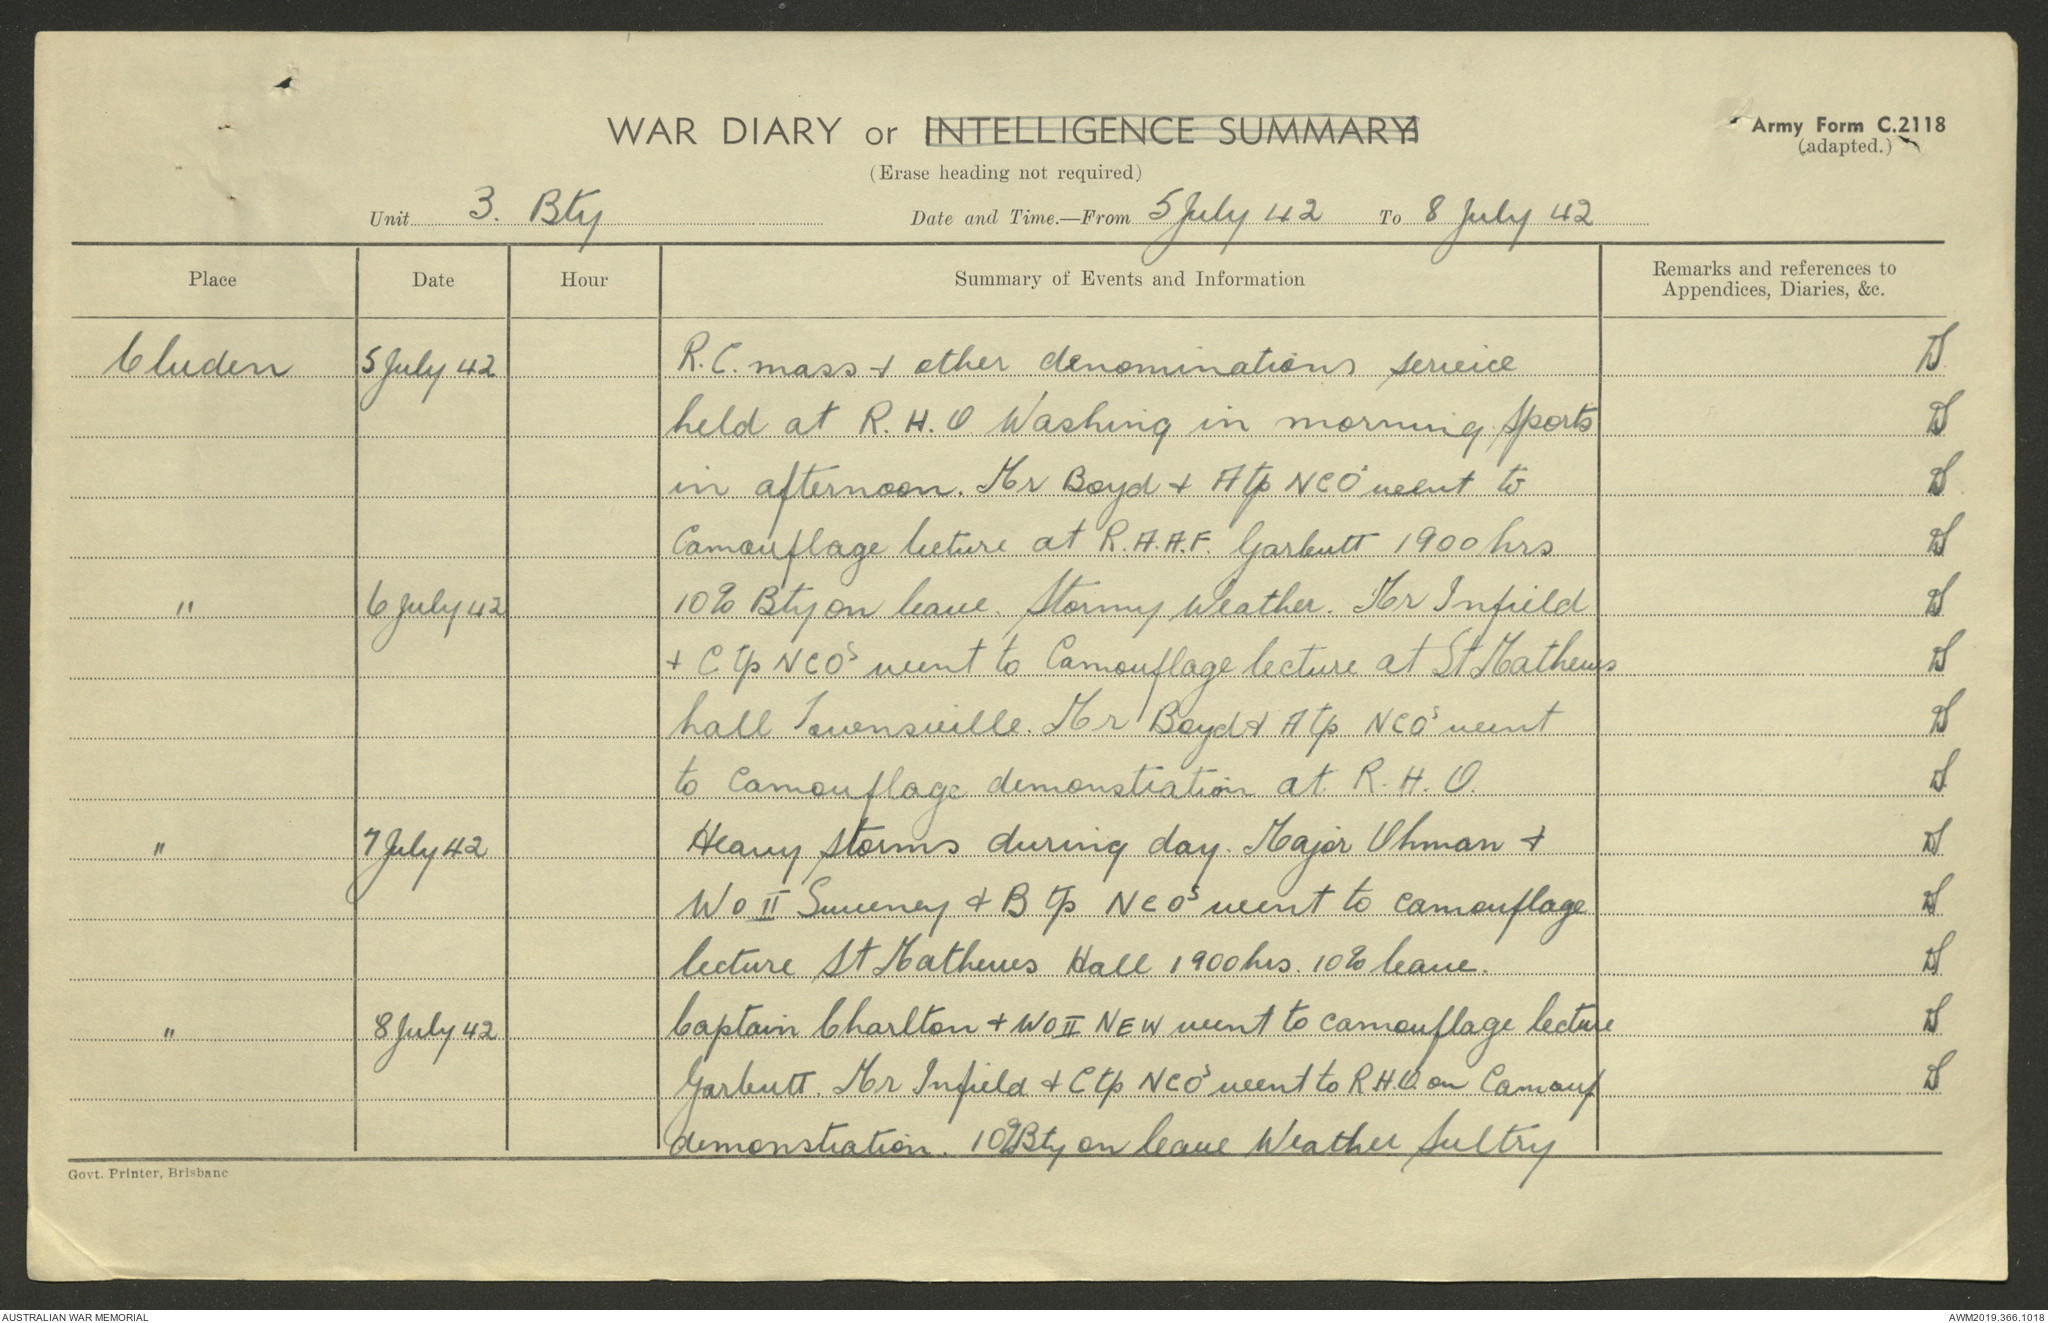 WAR DIARY or INTELLIGENCE SUMMARY
Army Form C.2118
(adapted.)
(Erase heading not required)
Unit 3. Bty Date and Time.—From 5 July 42 To 8 July 42
Place Date Hour Summary of Events and Information Remarks and references to
Appendices, Diaries, &c.
Cluden 5 July 42 R.C. mass + other denominations service
held at R.H.Q. Washing in morning. Sports
in afternoon. Mr Boyd + A tp NCO's went to
Camouflage lecture at R.A.A.F. Garbutt 1900 hrs
" 6 July 42 10% Bty on leave. Stormy Weather. Mr Infield
+ C tp NCO's went to Camouflage lecture at St Mathews
hall Townsville. Mr Boyd + A tp NCO's went
to Camouflage demonstration at R.H.Q.
" 7 July 42 Heavy storms during day. Major Ohman +
WO II Sweeney + B tp NCO's went to camouflage
lecture St Mathews Hall 1900 hrs. 10% leave.
" 8 July 42 Captain Charlton + WO II NEW went to camouflage lecture
Garbutt. Mr Infield + C tp NCO's went to R.H.Q. on Camouf
demonstration. 10% Bty on leave Weather Sultry
Govt. Printer, Brisbane
AUSTRALIAN WAR MEMORIAL AWM2019.366.1018